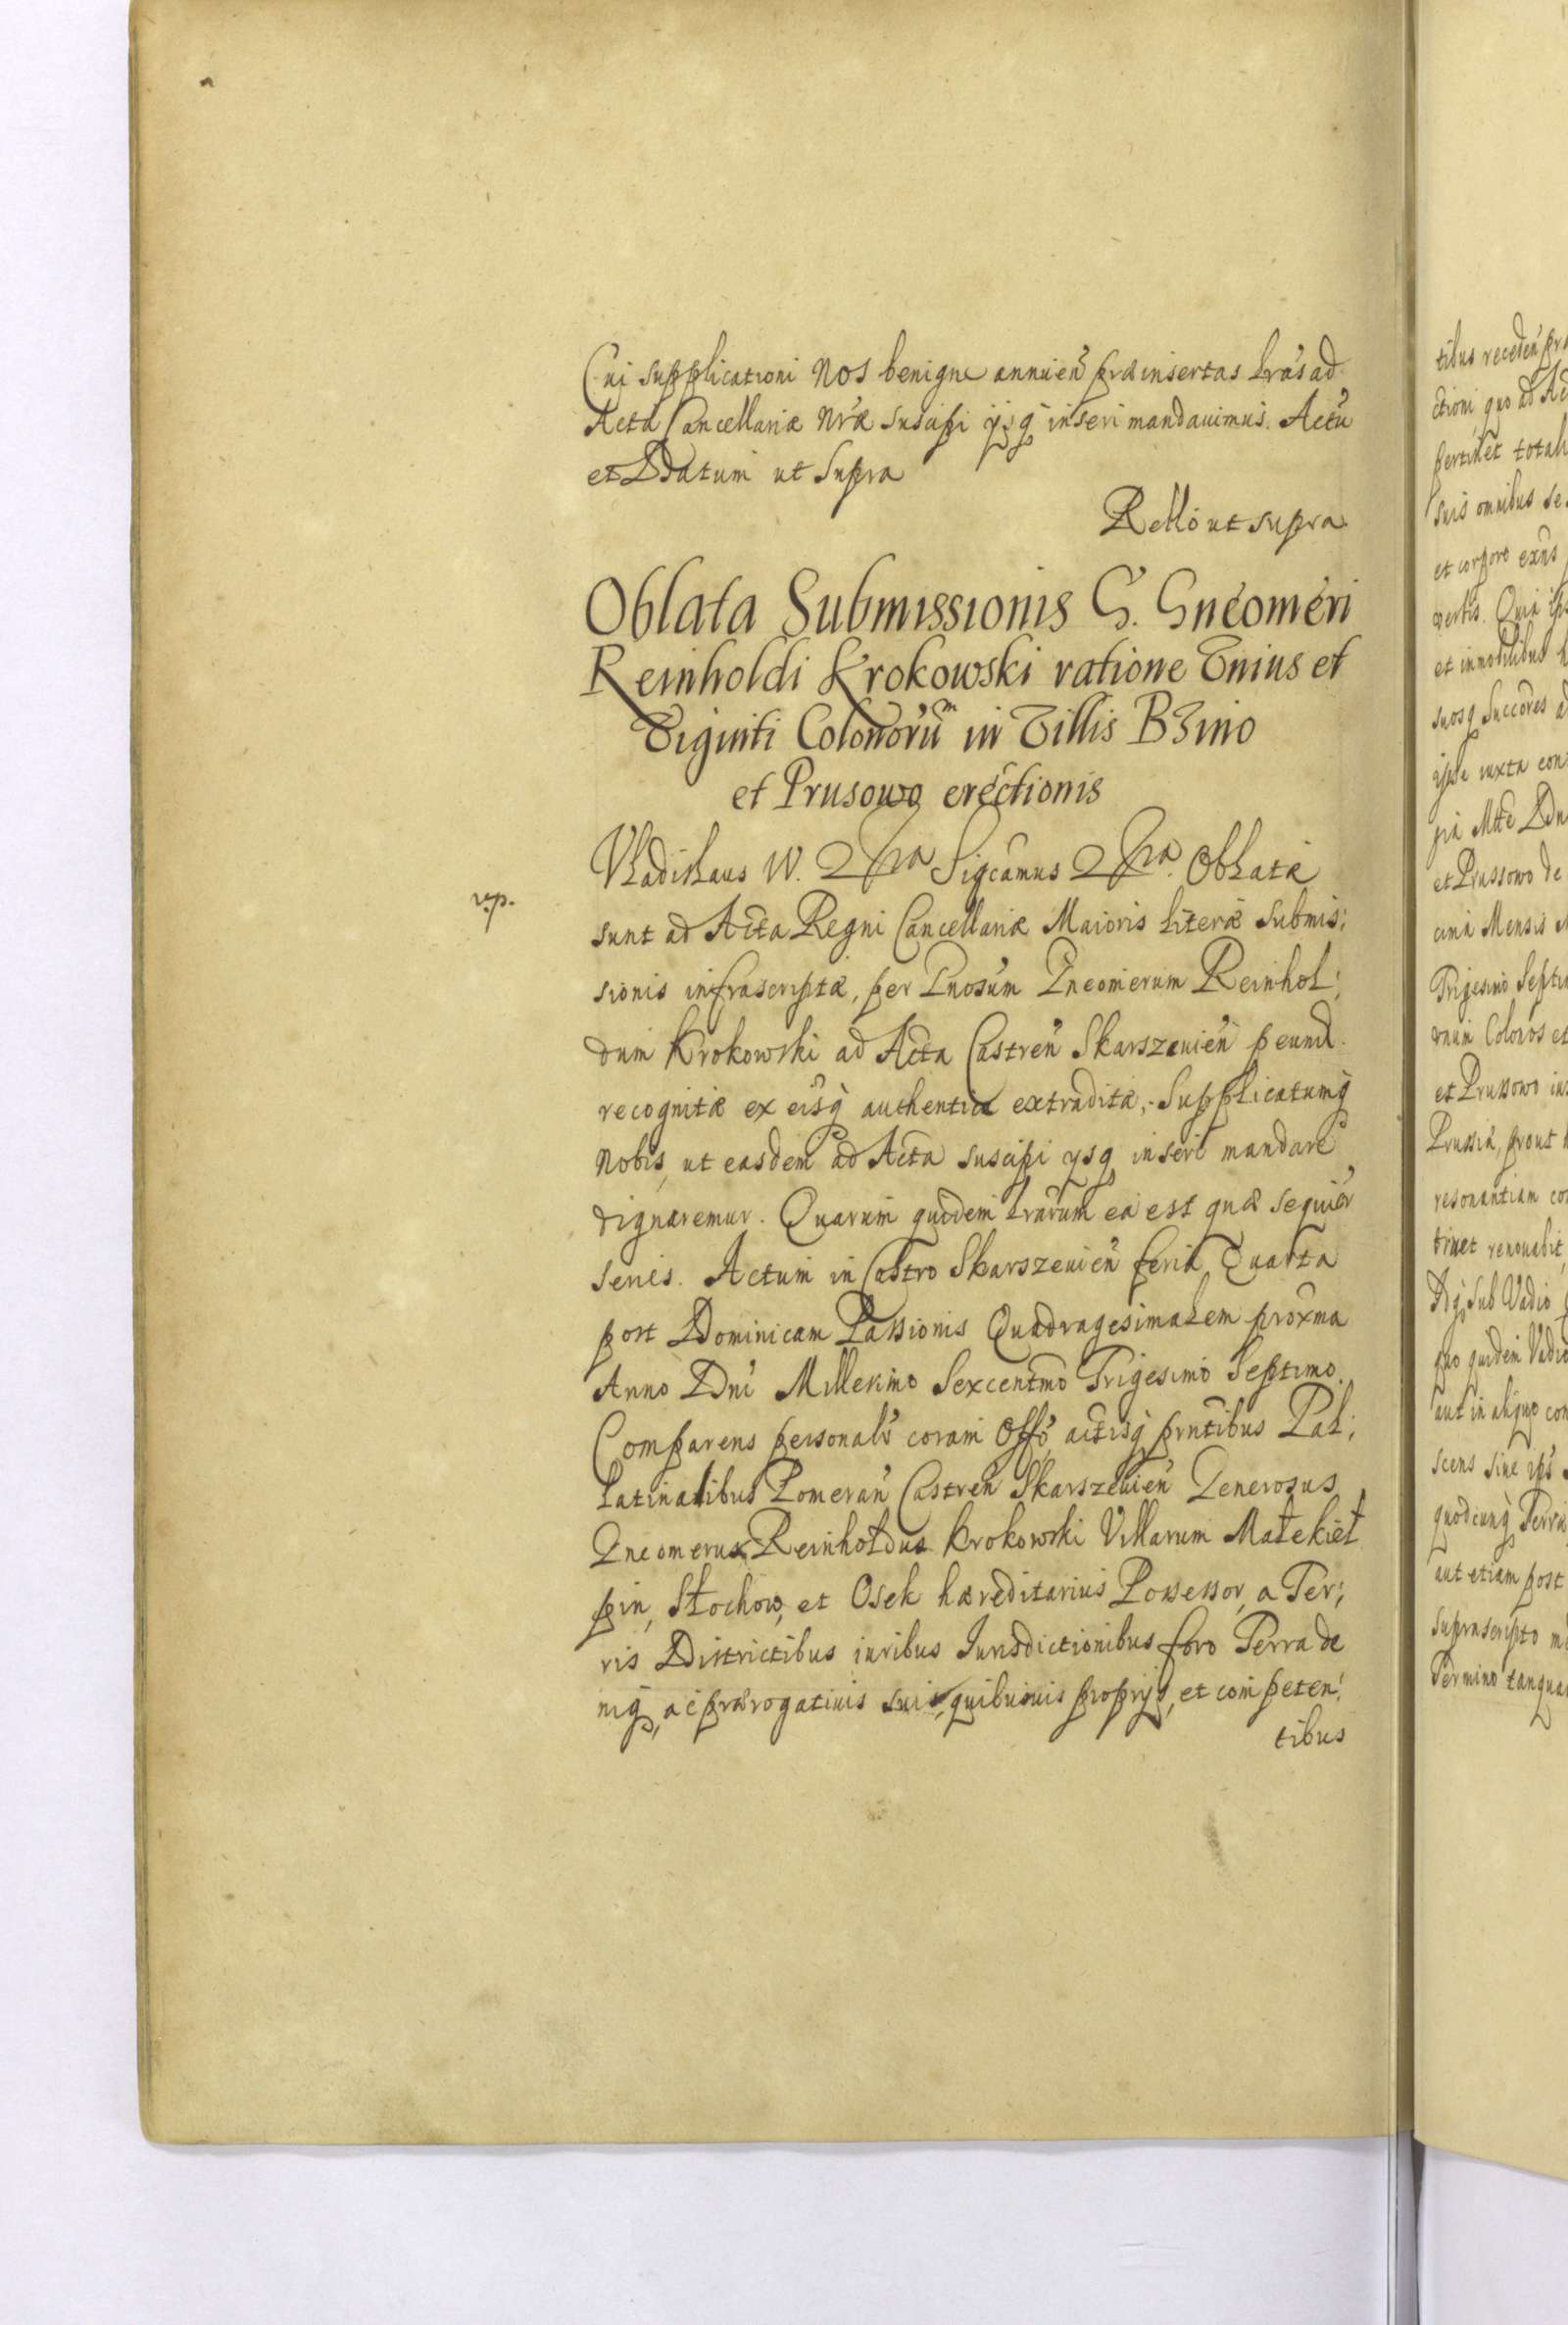 Cui supplicationi Nos benigne annuen̄ præinsertas lr̄as ad
Acta Cancellariæ Nr̄æ suscipi ijsq̨ inseri mandauimus. Actū
et Datum ut supra
Rellō ut supra
Oblata Submissionis G. Gneomeri
Reinholdi Krokowski ratione Vnius et
Viginti Colonorūm in Villis Bzino
et Prusowo erectionis
Vladislaus IV. Sigcamus Oblatæ
rep.
sunt ad Acta Regni Cancellariæ Maioris literæ submis:
sionis infrascriptæ, per Gnosum Gneomerum Reinhol:
dum Krokowski ad Acta Castren̄ Skarszeuien̄ peund
recognitæ ex eisq̨ authenticæ extraditæ, Supplicatumq̨
Nobis, ut easdem ad Acta suscipi ysq̨ inseri mandare
dignaremur. Quarum quidem lrarum ea est quæ sequir̄
series. Actum in Castro Skarszeuien̄ feria Quarta
post Dominicam Passionis Quadragesimalem proxma
Anno Dni Millesimo Sexcentmo Trigesimo Septimo.
Comparens personalr̄ coram Offō, actisq̨ prntibus Pal:
latinalibus Pomeran̄ Castren̄ Skarszeuien̄ Generosus
Gneomerus Reinholdus Krokowski Villarum Małekiet
pin, Słochow, et Osek hæreditarius Possessor, a Ter:
ris Districtibus iuribus Jurisdictionibus foro Terra de
niq̨, ac prærogatiuis suis, quibusuis proprijs, et competen:
tibus
tibus receden̄
ctioni, quo ad
pertinet
suis omnibus se
et corpore
Quia
et inmobilibus
suosq̨ Succōres
ipse iuxta
et Prussowo de
Mensis
Trigesimo
Colonos et
et Prussowo
Prussiæ, prout
resonantiam
renouabit
sub Vadio
quo quidem Vadio
aut in aliquo
scens sine
quodcunq̨ Terræ
aut etiam post
suprascripto
Termino